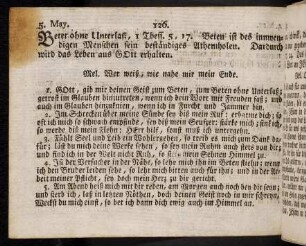 5. May. 126.
Beter ohne Unterlaß, 1 Thess. 5, 17. Beten ist des inwen-
digen Menschen sein beständiges Athemholen. Dardurch
wird das Leben aus GOtt erhalten.
Mel. Wer weiß, wie nahe mir mein Ende.
1. GOtt, gib mir deinen Geist zum Beten, zum Beten ohne Unterlaß,
getrost im Glauben hinzutreten, wenn ich dein Wort mit Freuden faß; und
auch im Glauben hinzuknien, wenn ich in Furcht und Jammer bin.
2. Im Schrecken über meine Sünde sey diß mein Ruf: erbarme dich; so
oft ich mich so schwach empfinde, sey diß mein Seufzer: stärke mich; und
so werde diß mein Flehn: HErr hilf, sonst muß ich untergehn.
3. Fühlt Seel und Leib ein Wohlergehen, so treib es mich zum Dank da-
für; läst du mich deine Werke sehen, so sey mein Rühm auch stets von dir;
und find ich in der Welt nicht Ruh, so steig mein Sehnen Himmel zu.
4. Ist der Versucher in der Nähe, so lehr mich ihn im Beten fliehn; wenn ich
den Bruder leiden sehe, so lehr mich bitten auch für ihn; und in der Ar-
beit meiner Pflicht, sey doch mein Herz zu dir gericht.
5. Am Abend heiß mich mit dir reden, am Morgen auch noch bey dir seyn;
und sterb ich, laß in letzten Nöthen, doch deinen Geist noch in mir schreyn;
Weckst du mich einst, so bet ich dich ewig auch im Himmel an.